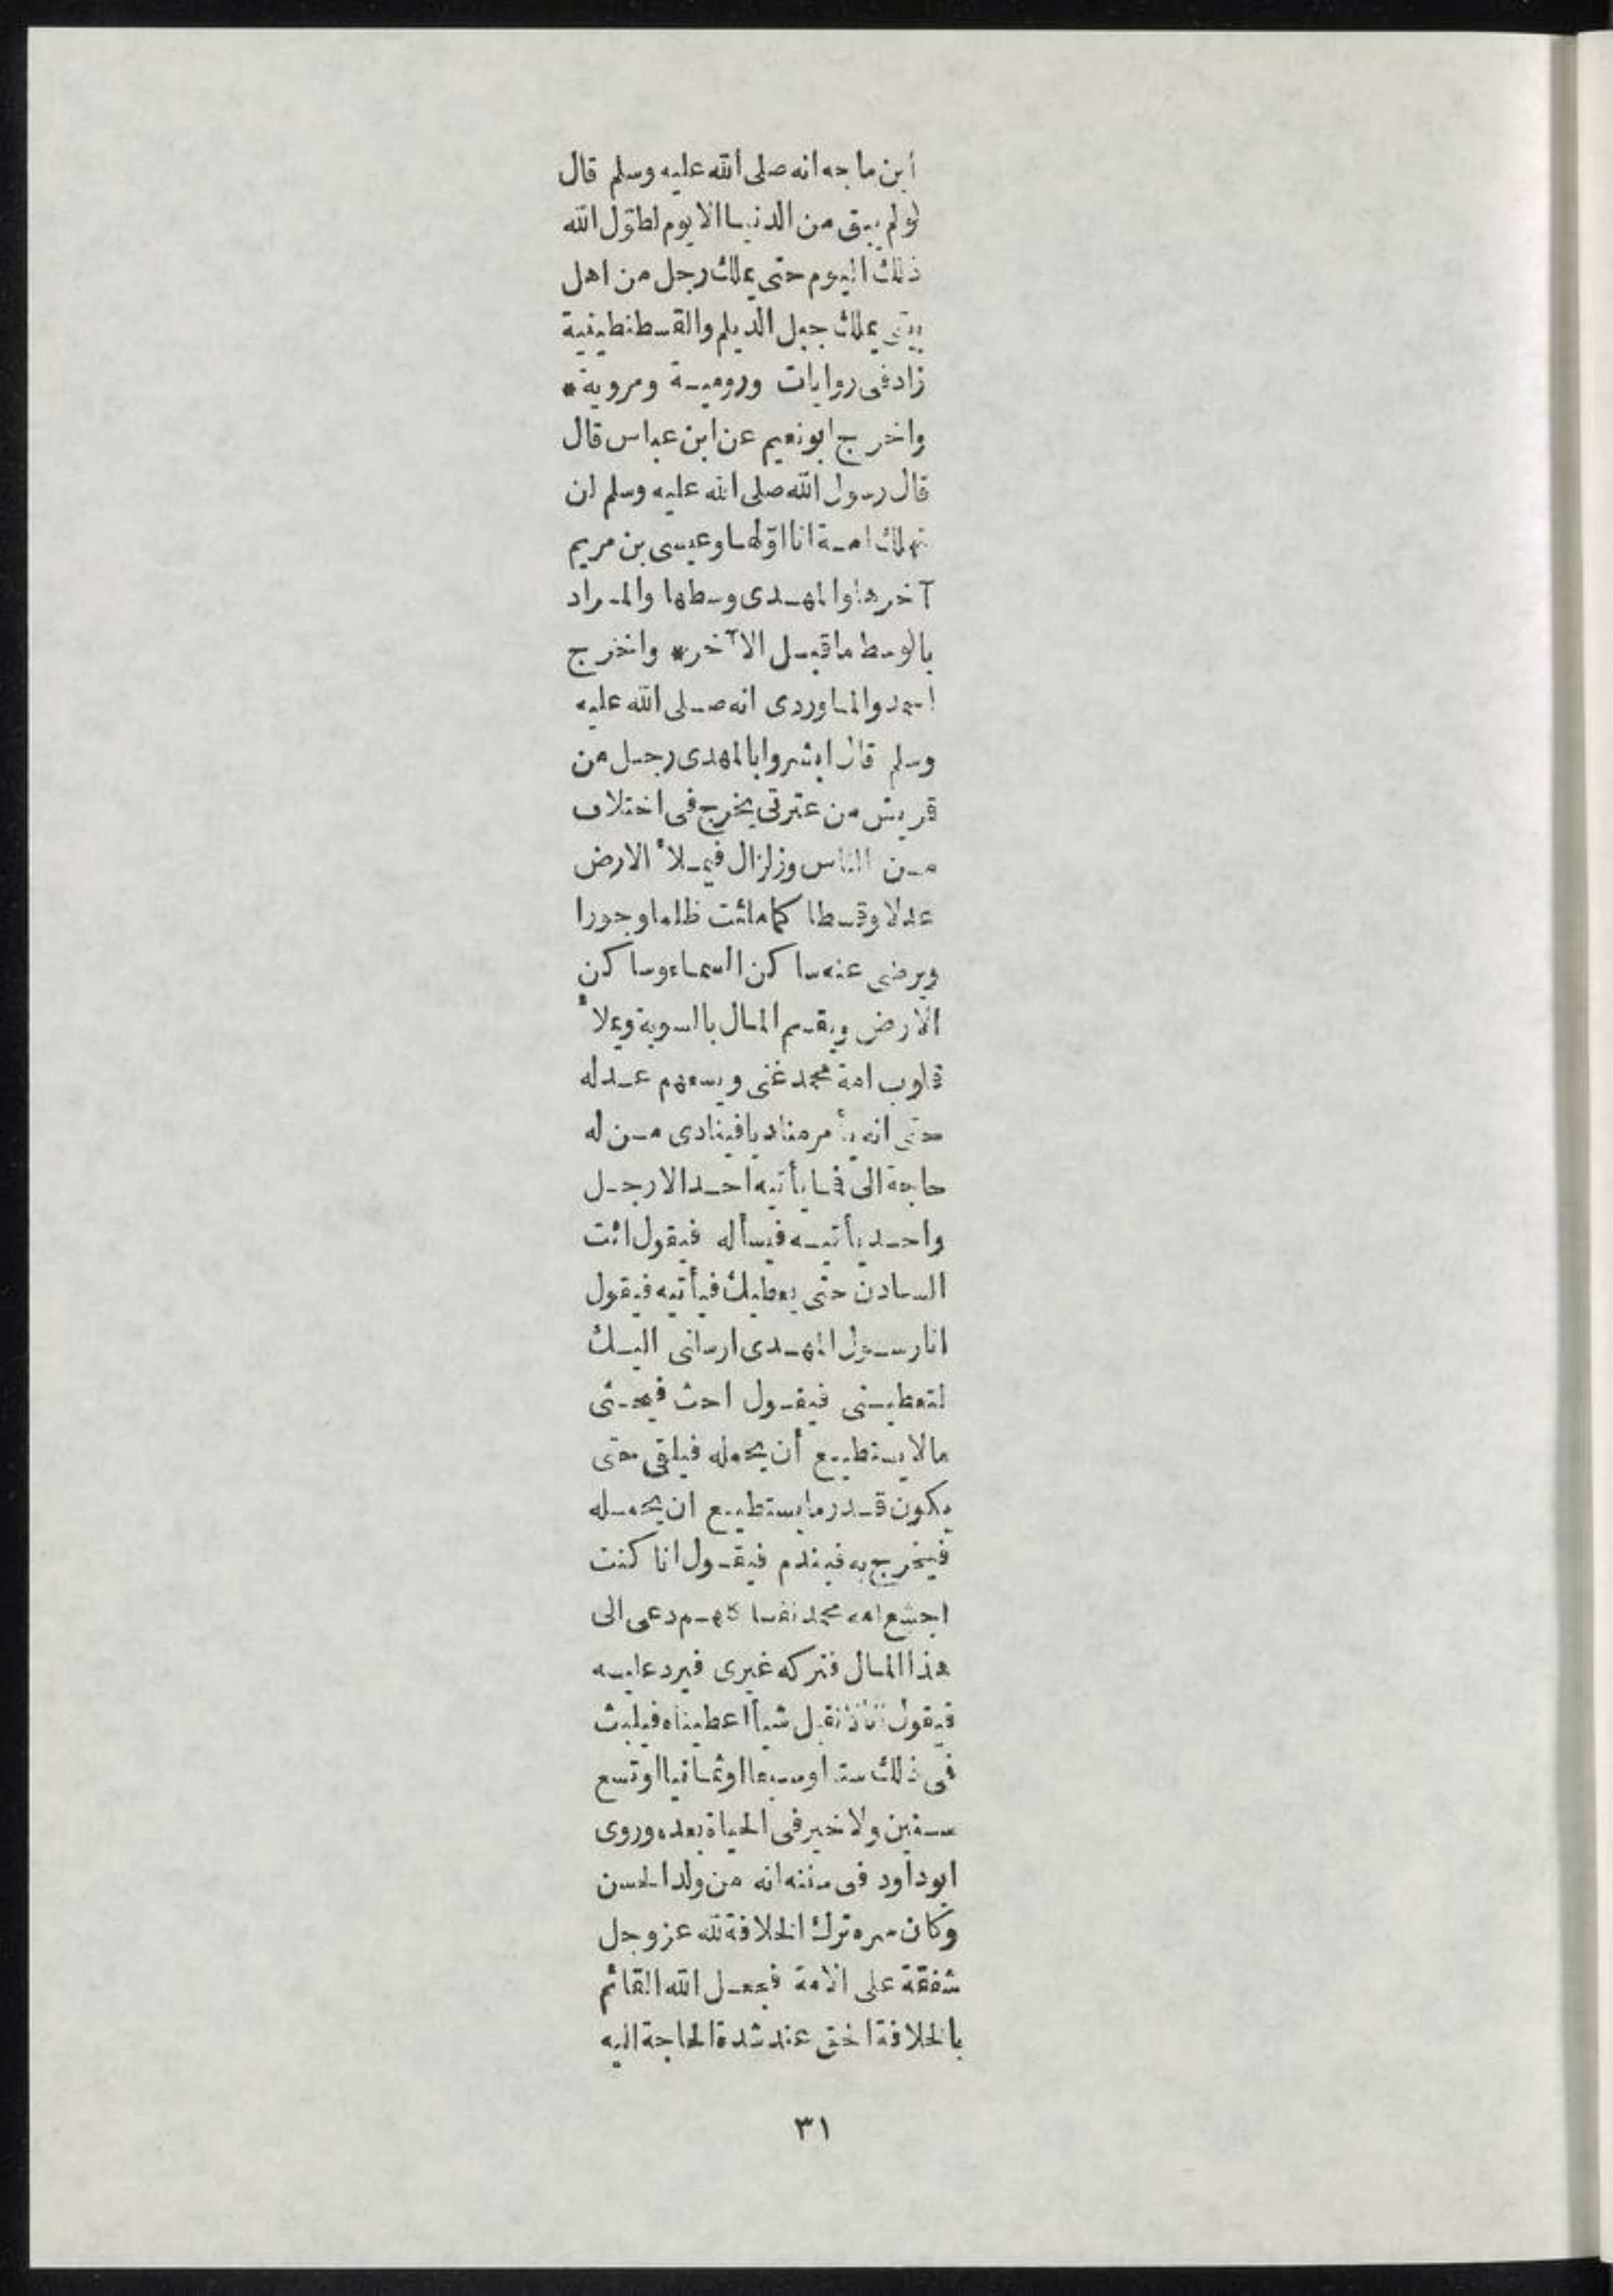 ابن ماجه انه صلى الله عليه وسلم قال
لو لم يبق من الدنيا الا يوم لطوّل الله
ذلك اليوم حتى يملك رجل من اهل
بيتى يملك جبل الديلم والقسطنطينية
زاد فى روايات ورومية ومروية *
واخرج ابو نعيم عن ابن عباس قال
قال رسول الله صلى الله عليه وسلم لن
تهلك امة انا اوّلها وعيسى بن مريم
آخرها والمهدى وسطها والمراد
بالوسط ما قبل الآخر * واخرج
احمد والماوردى انه صلى الله عليه
وسلم قال ابشروا بالمهدى رجل من
قريش من عترتى يخرج فى اختلاف
من الناس وزلزال فيملأ الارض
عدلا وقسطا كما ملئت ظلما وجورا
ويرضى عنه ساكن السماء وساكن
الارض ويقسم المال بالسوية ويملأ
قلوب امة محمد غنى ويسعهم عدله
حتى انه يأمر مناديا فينادى من له
حاجة الى فما يأتيه احد الا رجل
واحد يأتيه فيسأله فيقول ائت
السادن حتى يعطيك فيأتيه فيقول
انا رسول المهدى ارسلنى اليك
لتعطينى فيقول احث فيحثى
ما لا يستطيع أن يحمله فيلقى حتى
يكون قدر ما يستطيع ان يحمله
فيخرج به فيندم فيقول انا كنت
اجشع امة محمد نفسا كلهم دعى الى
هذا المال فتركه غيرى فيرد عليه
فيقول انا لا نقبل شيأ اعطيناه فيلبث
فى ذلك ستا او سبعا او ثمانيا او تسع
سنين ولا خير فى الحياة بعده وروى
ابو داود فى سننه انه من ولد الحسن
وكان سره ترك الخلافة لله عز وجل
شفقة على الامة فجعل الله القائم
بالخلافة الحق عند شدة الحاجة اليه
٣١